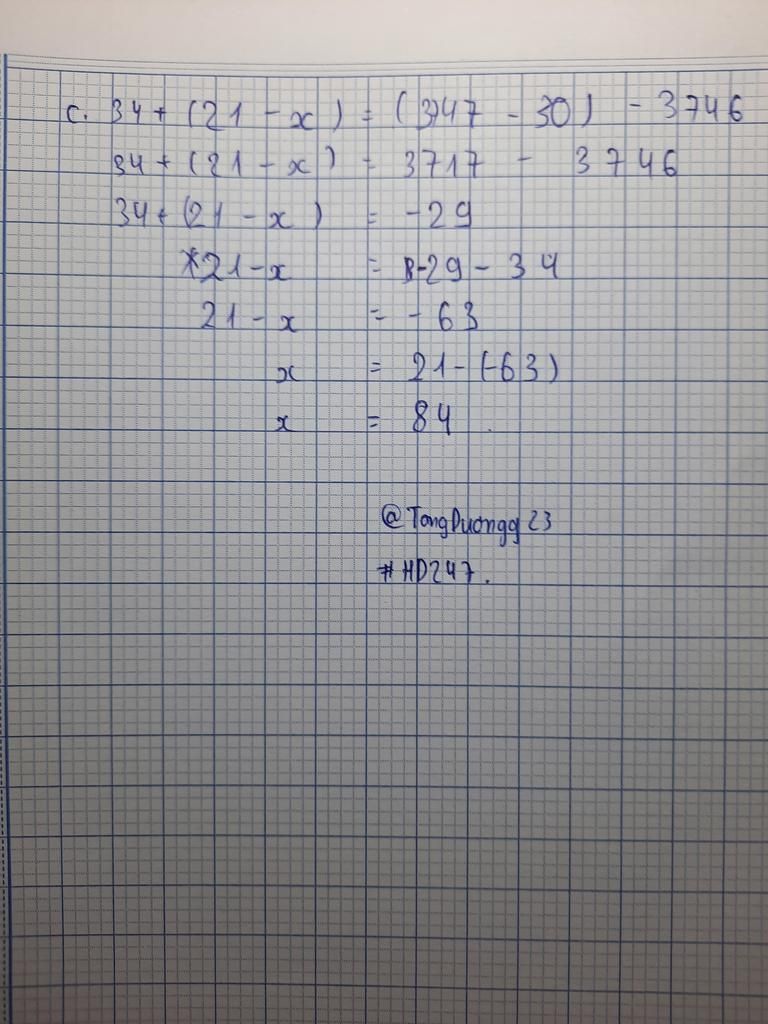 c. 34 + (21 - x) = (3747 - 30) - 3746
34 + (21 - x) = 3717 - 3746
34 + (21 - x) = -29
21 - x = -29 - 34
21 - x = -63
x = 21 - (-63)
x = 84
@TongDuongg23
#HD247.